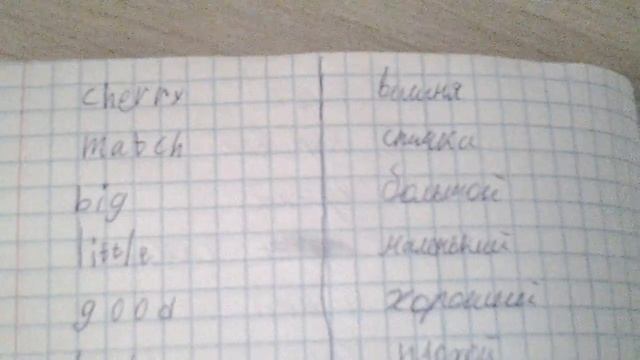 cherry вишня
match спичка
big большой
little маленький
good хороший
плохой